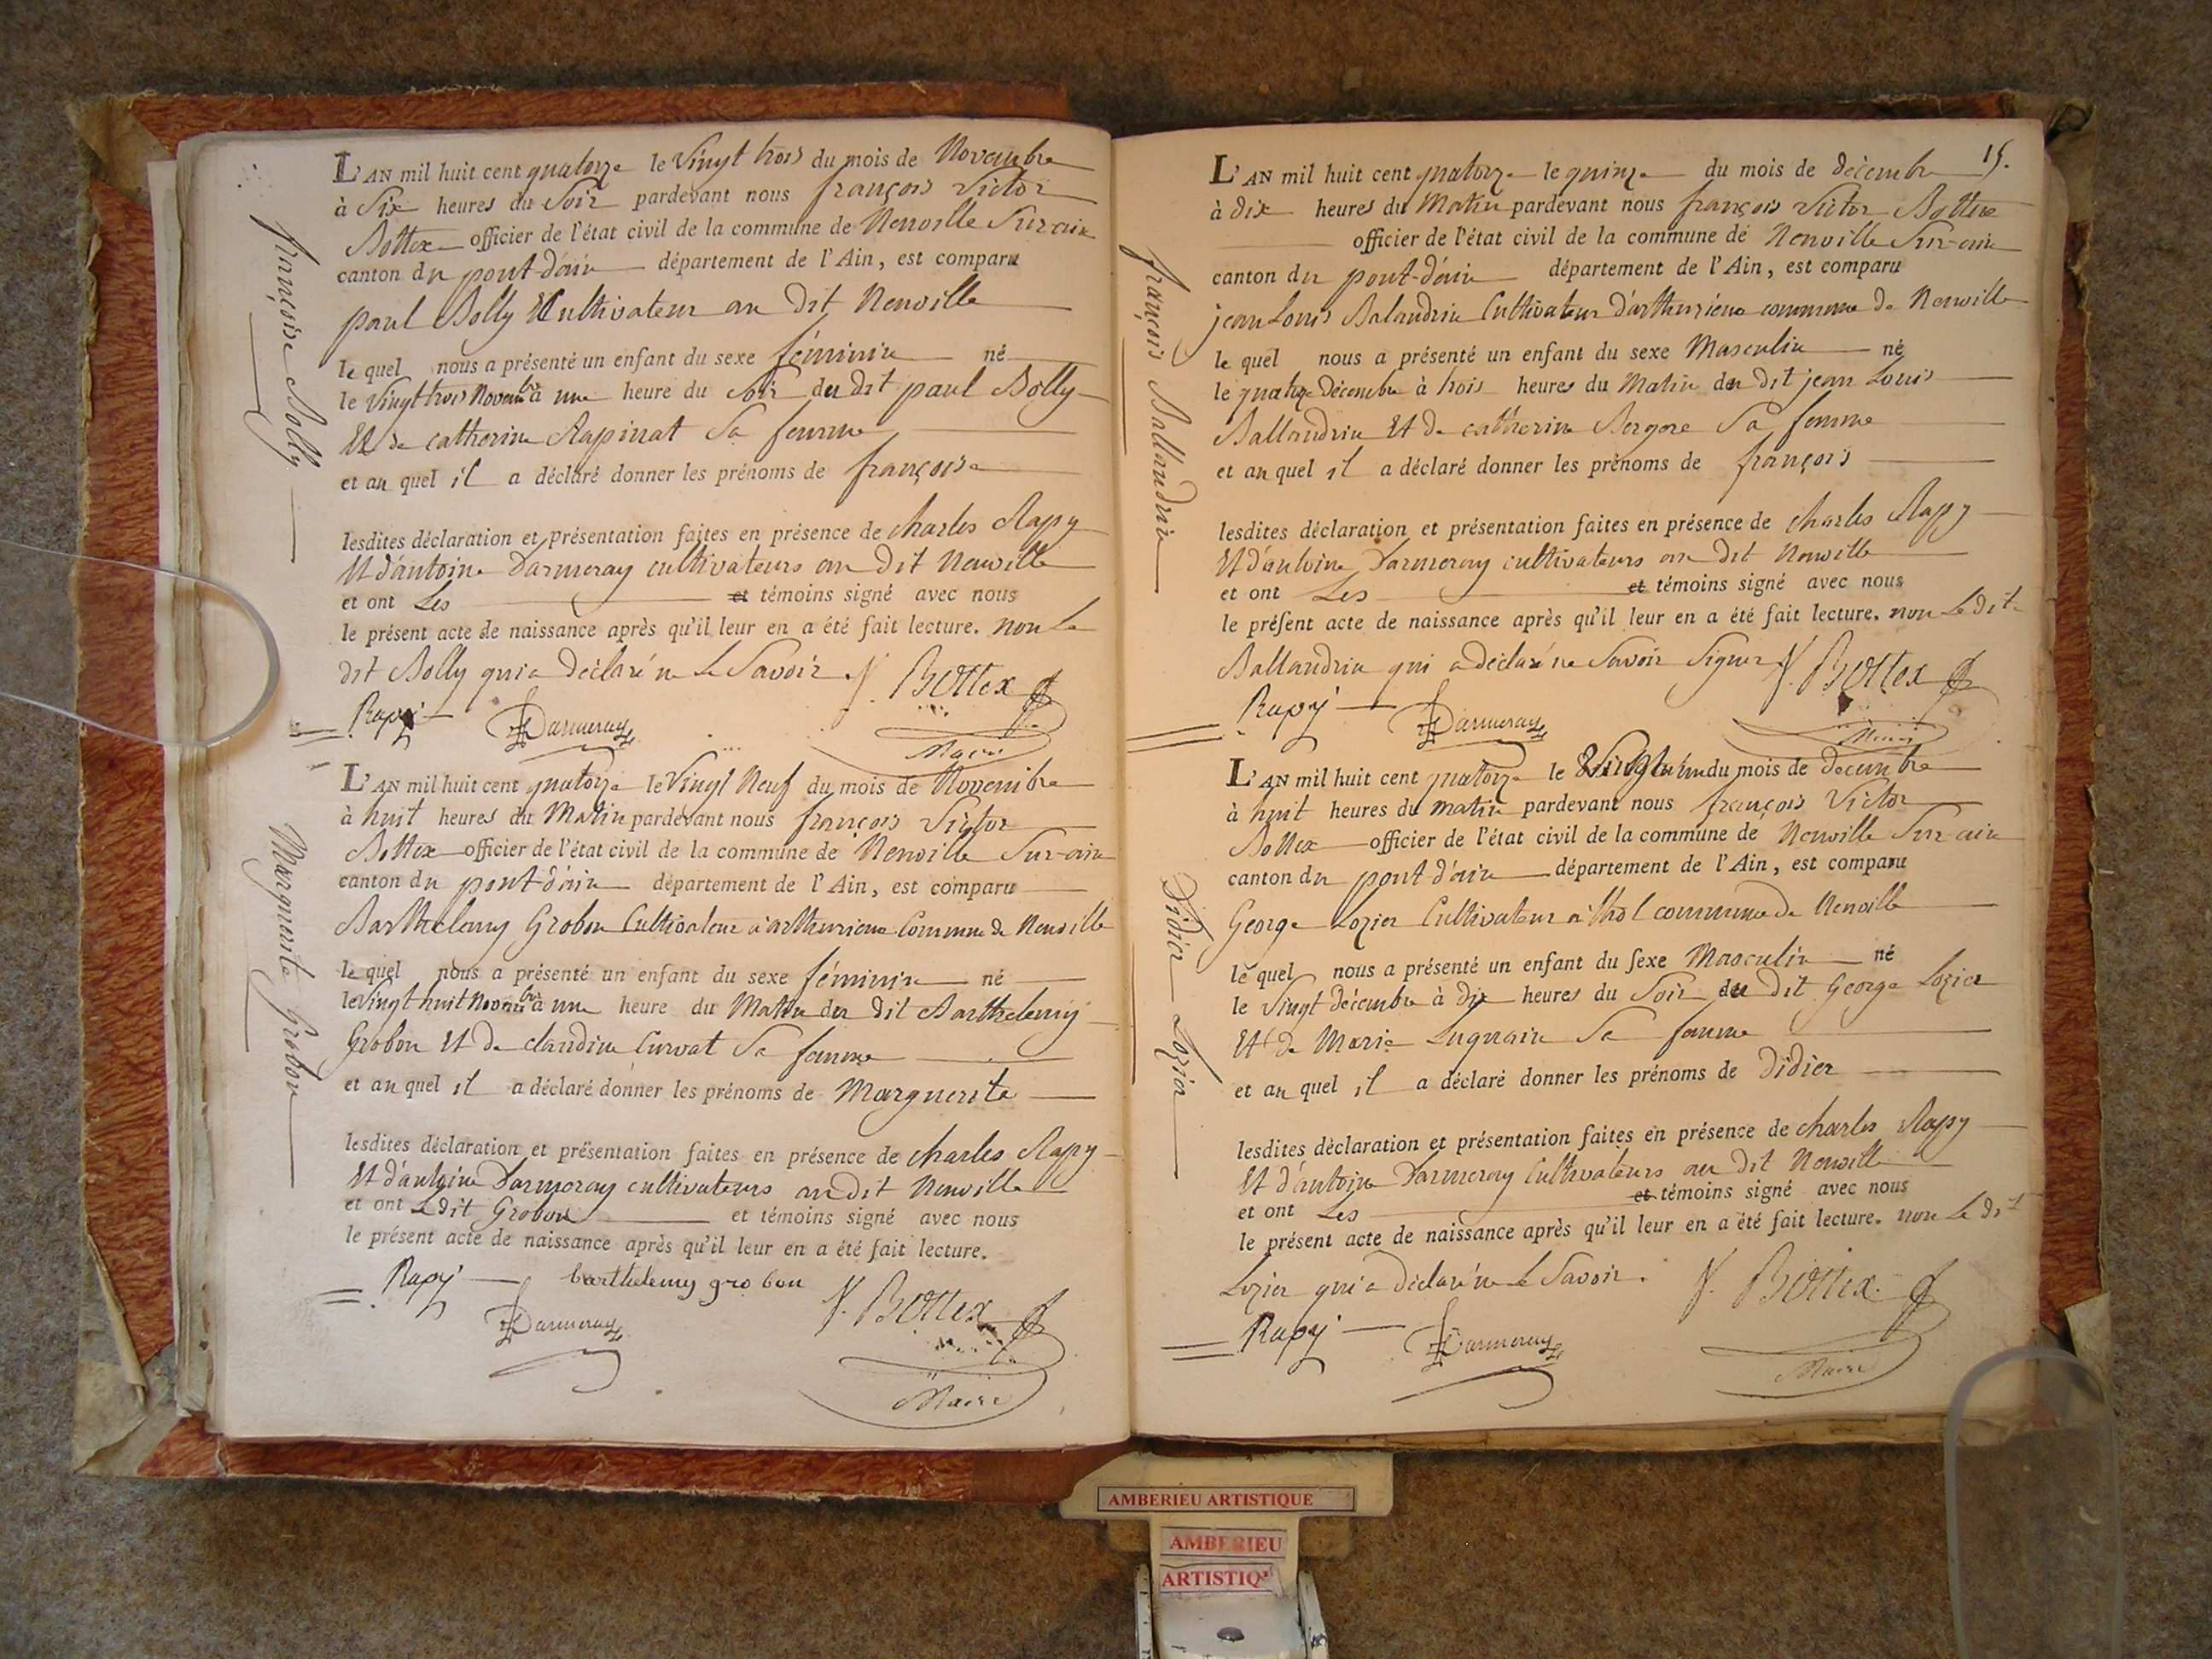 L'AN mil huit cent quatorze le Vingt trois du mois de Novembre
à Six heures du Soir pardevant nous françois Victor
Bottex officier de l'état civil de la commune de Neuville Sur ain
canton du pont-d'ain département de l'Ain, est comparu
paul Bolly Cultivateur au dit Neuville
le quel nous a présenté un enfant du sexe féminin né
le Vingt trois Novembre à une heure du Soir du dit paul Bolly
Et de catherine Rapinat Sa femme
et au quel il a déclaré donner les prénoms de françoise
lesdites déclaration et présentation faites en présence de charles Rapy
Et d'antoine Darmeray cultivateurs au dit Neuville
et ont Les et témoins signé avec nous
le présent acte de naissance après qu'il leur en a été fait lecture. non Le
dit Bolly qui a déclaré ne Le Savoir. V. Bottex
Rapy Darmeray
Maire
françoise Bolly
L'AN mil huit cent quatorze le Vingt Neuf du mois de Novembre
à huit heures du Matin pardevant nous françois Victor
Bottex officier de l'état civil de la commune de Neuville Sur-ain
canton du pont-d'ain département de l'Ain, est comparu
Barthelemy Grobon Cultivateur à arthurieux Commune de Neuville
le quel nous a présenté un enfant du sexe féminin né
le Vingt huit Novembre à une heure du Matin du dit Barthelemy
Grobon Et de claudine Curvat Sa femme
et au quel il a déclaré donner les prénoms de Marguerite
lesdites déclaration et présentation faites en présence de charles Rapy
Et d'antoine Darmeray cultivateurs au dit Neuville
et ont Le dit Grobon et témoins signé avec nous
le présent acte de naissance après qu'il leur en a été fait lecture.
Rapy barthelemy grobon V. Bottex
Darmeray
Maire
Marguerite Grobon
15.
L'AN mil huit cent quatorze le quinze du mois de décembre
à dix heures du Matin pardevant nous françois Victor Bottex
officier de l'état civil de la commune de Neuville Sur-ain
canton du pont-d'ain département de l'Ain, est comparu
jean Louis Balandrin Cultivateur d'arthurieux commune de Neuville
le quel nous a présenté un enfant du sexe Masculin né
le quatorze décembre à trois heures du Matin du dit jean Louis
Ballandrin Et de catherine Sa femme
et au quel il a déclaré donner les prénoms de françois
lesdites déclaration et présentation faites en présence de charles Rapy
Et d'antoine Darmeray cultivateurs au dit Neuville
et ont Les et témoins signé avec nous
le présent acte de naissance après qu'il leur en a été fait lecture. non Le dit
Ballandrin qui a déclaré ne Savoir Signer V. Bottex
Rapy Darmeray
Maire
françois Ballandrin
L'AN mil huit cent quatorze le Vingt un du mois de decembre
à huit heures du matin pardevant nous françois Victor
Bottex officier de l'état civil de la commune de Neuville Sur-ain
canton du pont-d'ain département de l'Ain, est comparu
George Lozier Cultivateur à thol commune de Neuville
le quel nous a présenté un enfant du sexe Masculin né
le Vingt décembre à dix heures du Soir du dit George Lozier
Et de Marie Luquain Sa femme
et au quel il a déclaré donner les prénoms de Didier
lesdites déclaration et présentation faites en présence de charles Rapy
Et d'antoine Darmeray Cultivateurs au dit Neuville
et ont Les et témoins signé avec nous
le présent acte de naissance après qu'il leur en a été fait lecture. non Le dit
Lozier qui a déclaré ne Le Savoir. V. Bottex
Rapy Darmeray
Maire
Didier Lozier
AMBERIEU ARTISTIQUE
AMBERIEU
ARTISTIQ